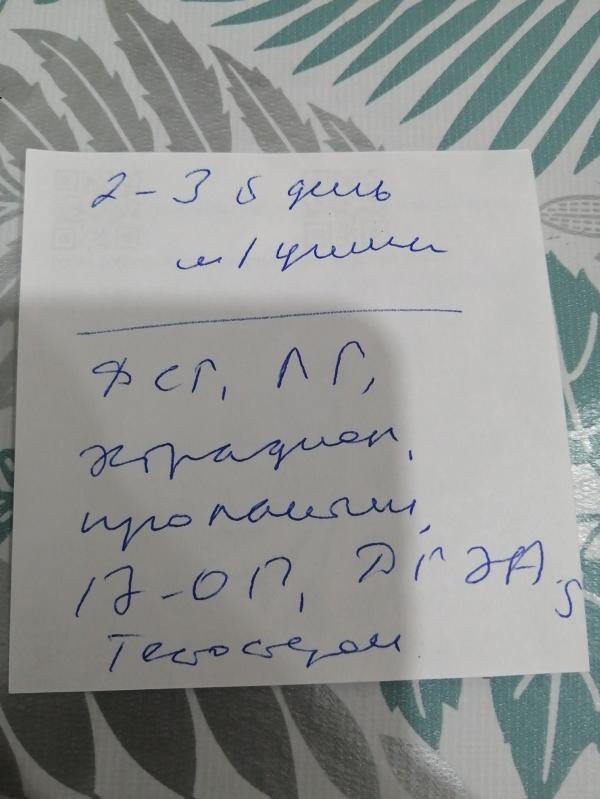 2-3 й день
м/цикла
ФСГ, ЛГ,
эстрадиол,
пролактин,
17-ОП, ДГЭА-S
Тестостерон